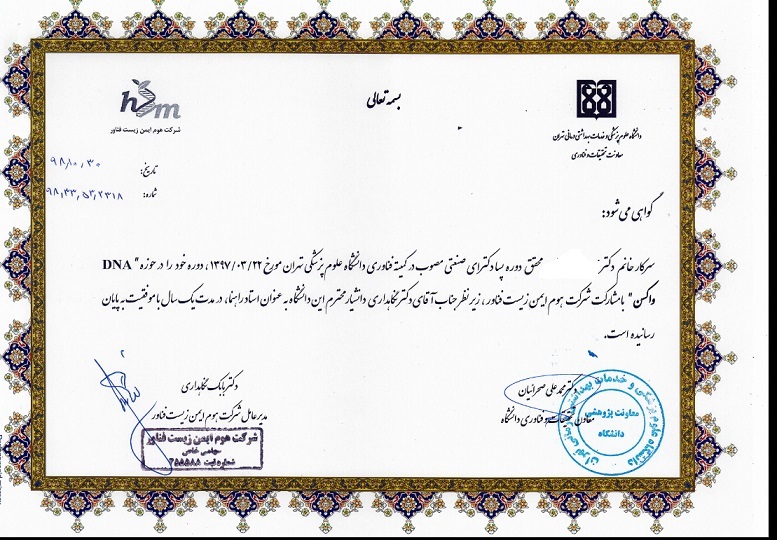 بسمه تعالی
دانشگاه علوم پزشکی و خدمات بهداشتی درمانی تهران
معاونت تحقیقات و فناوری
hm
شرکت هوم ایمن زیست فناور
تاریخ: ۹۸/۱۰/۳۰
شماره: ۹۸,۳۳,۵۳,۲۳۱۸
گواهی می شود:
سرکار خانم دکتر محقق دوره پسا دکترای صنعتی مصوب در کمیته فناوری دانشگاه علوم پزشکی تهران مورخ ۱۳۹۷/۰۳/۲۲، دوره خود را در حوزه " DNA
واکسن" با مشارکت شرکت هوم ایمن زیست فناور، زیر نظر جناب آقای دکتر نگاهداری دانشیار محترم این دانشگاه به عنوان استاد راهنما، در مدت یک سال با موفقیت به پایان
رسانیده است.
دکتر محمد علی صحرائیان
معاون تحقیقات و فناوری دانشگاه
دانشگاه علوم پزشکی و خدمات بهداشتی درمانی تهران
معاونت پژوهشی
دانشگاه
دکتر بابک نگاهداری
مدیر عامل شرکت هوم ایمن زیست فناور
شرکت هوم ایمن زیست فناور
سهامی خاص
شماره ثبت ۴۵۵۵۸۵